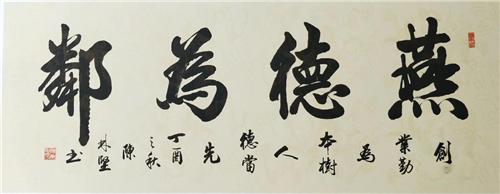 燕德為鄰
創
業勤
为
本樹
人
德當
先
丁酉
之秋
陳
林堅
书